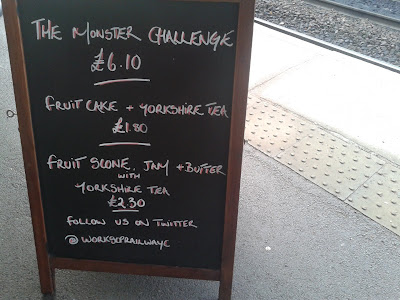 THE MONSTER CHALLENGE
£6.10
FRUIT CAKE + YORKSHIRE TEA
£1.80
FRUIT SCONE. JAM + BUTTER
WITH
YORKSHIRE TEA
£2.30
FOLLOW US ON TWITTER
@WORKSOPRAILWAYC